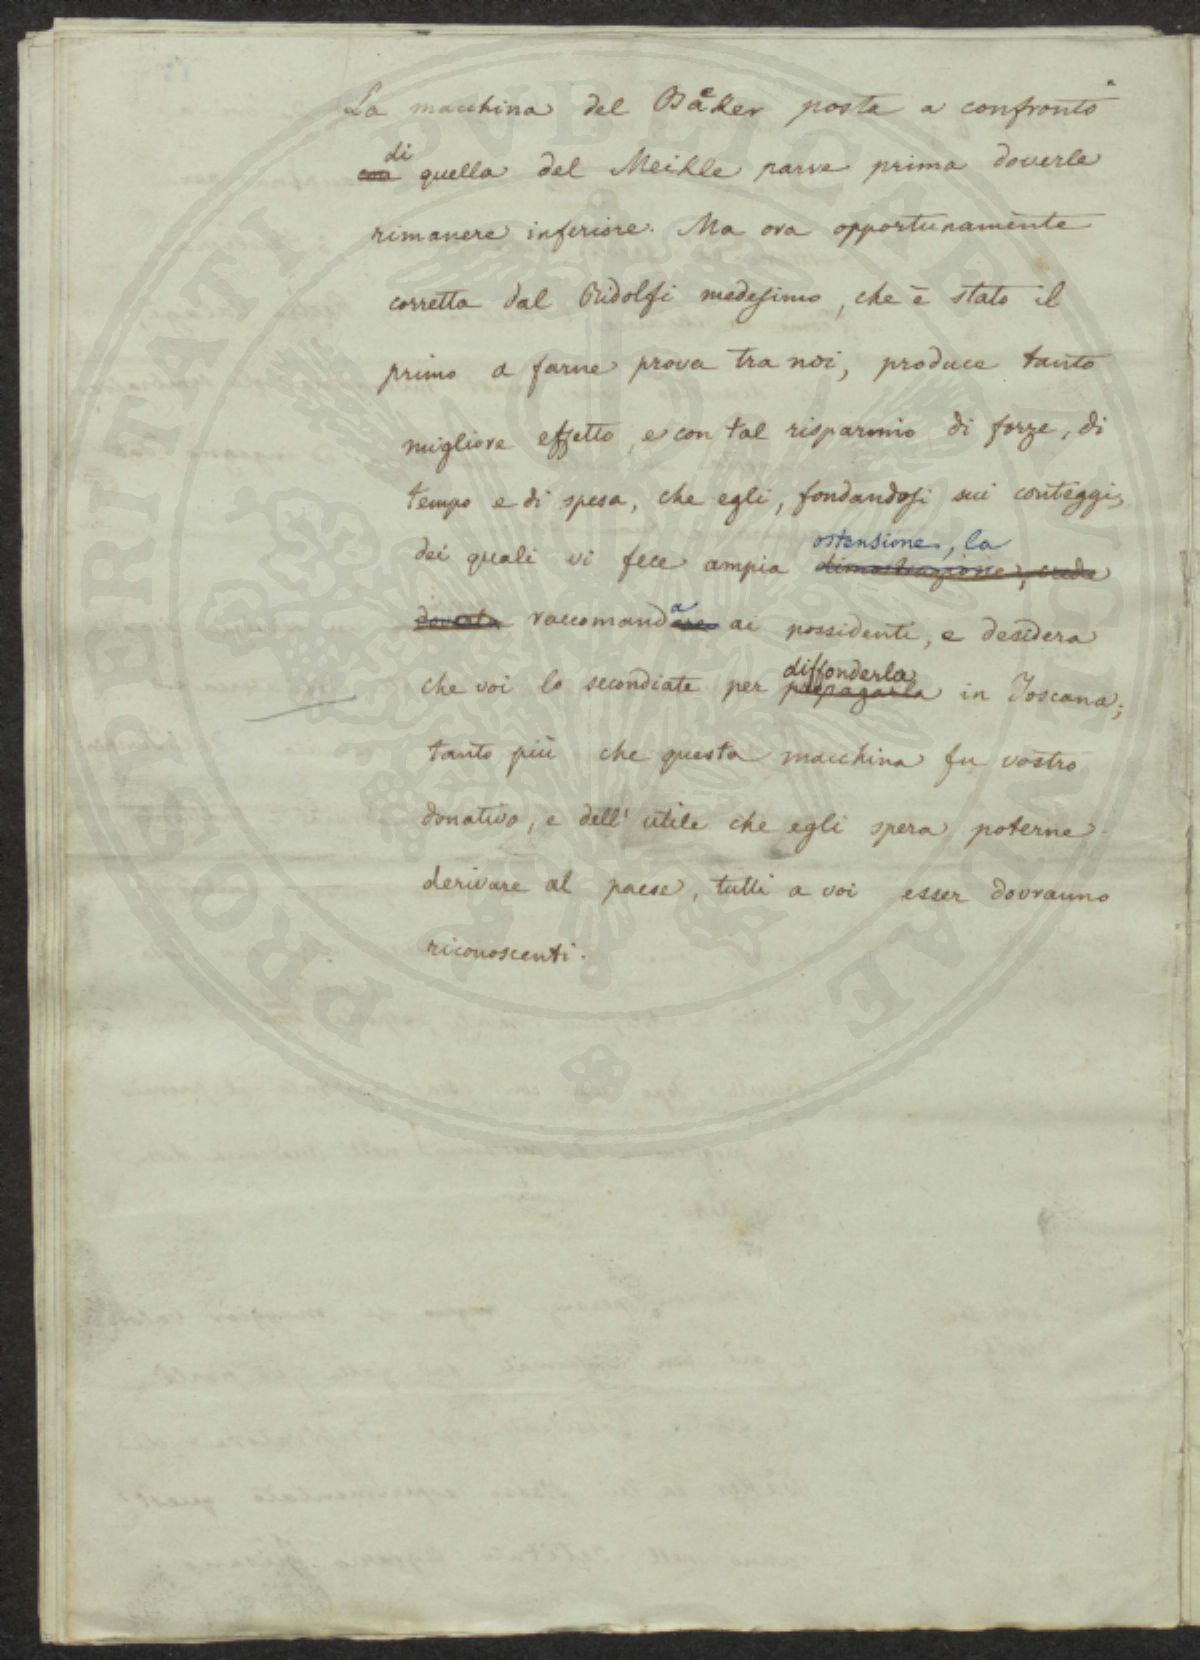 La macchina del Baker posta a confronto
di
con quella del Meikle parve prima doverle
rimanere inferiore. Ma ora opportunamente
corretta dal Ridolfi medesimo, che è stato il
primo a farne prova tra noi, produce tanto
migliore effetto, e con tal risparmio di forze, di
tempo e di spesa, che egli, fondandosi sui conteggi,
ostensione, la
dei quali vi fece ampia dimostrazione, crede
doverla raccomandare ai possidenti, e desidera
diffonderla
che voi lo secondiate per propagarla in Toscana;
tanto più che questa macchina fu vostro
donativo, e dell' utile che egli spera poterne
derivare al paese, tutti a voi esser dovranno
riconoscenti.
PROSPERITATI PVBLICAE AVGENDAE